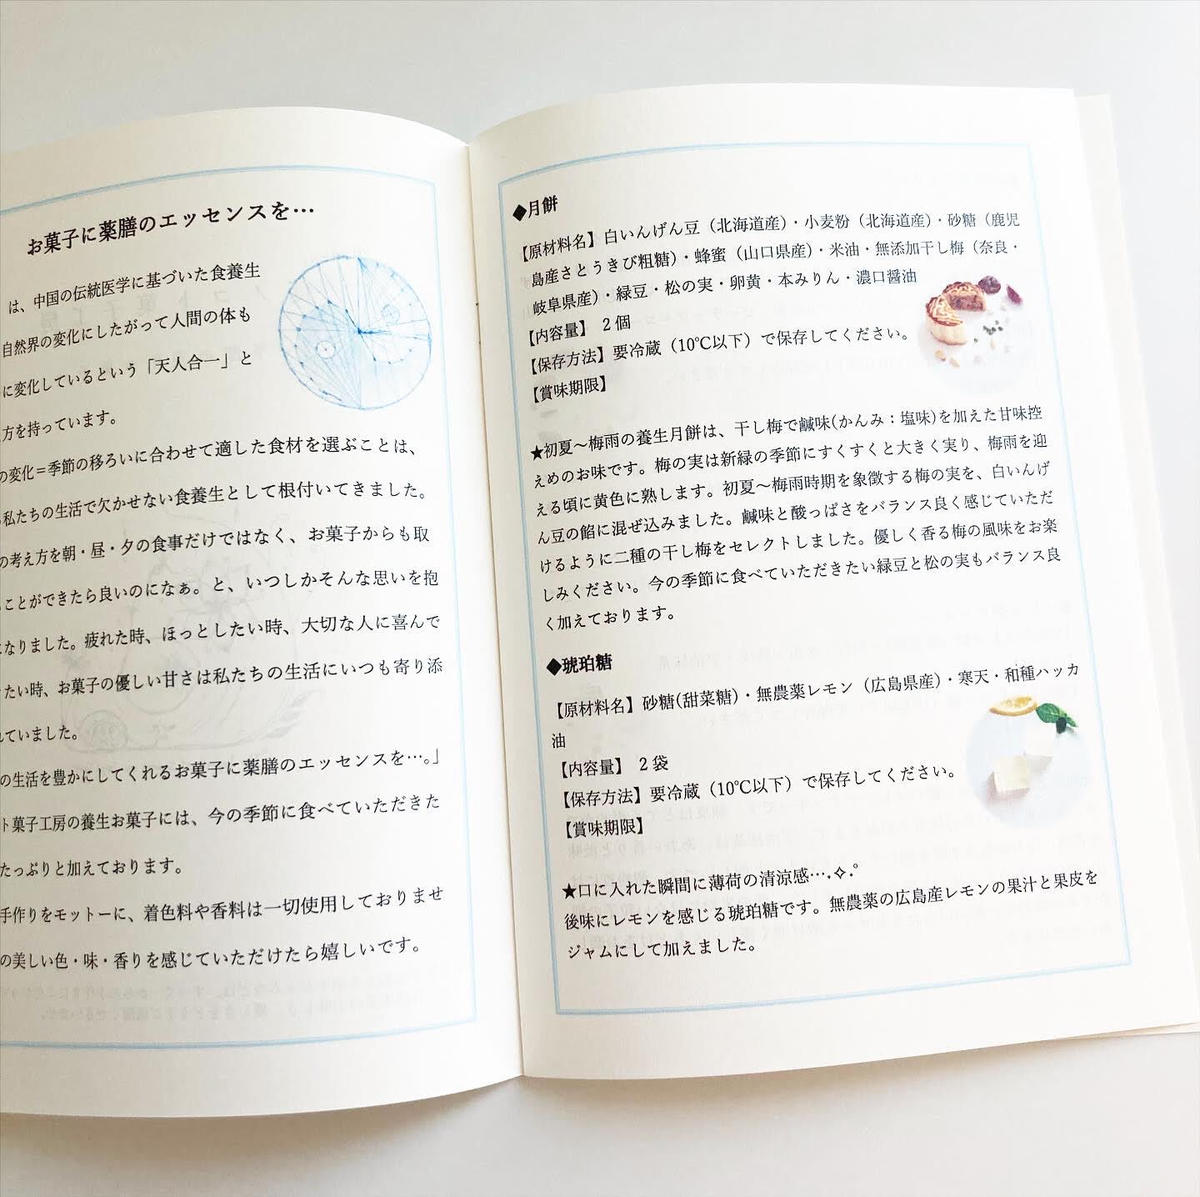 お菓子に薬膳のエッセンスを…
は、中国の伝統医学に基づいた食養生
自然界の変化にしたがって人間の体も
に変化しているという「天人合一」と
方を持っています。
の変化＝季節の移ろいに合わせて適した食材を選ぶことは、
私たちの生活で欠かせない食養生として根付いてきました。
の考え方を朝・昼・夕の食事だけではなく、お菓子からも取
ことができたら良いのになぁ。と、いつしかそんな思いを抱
なりました。疲れた時、ほっとしたい時、大切な人に喜んで
たい時、お菓子の優しい甘さは私たちの生活にいつも寄り添
れていました。
の生活を豊かにしてくれるお菓子に薬膳のエッセンスを…。」
ト菓子工房の養生お菓子には、今の季節に食べていただきた
たっぷりと加えております。
手作りをモットーに、着色料や香料は一切使用しておりませ
の美しい色・味・香りを感じていただけたら嬉しいです。
◆月餅
【原材料名】白いんげん豆（北海道産）・小麦粉（北海道産）・砂糖（鹿児
島産さとうきび粗糖）・蜂蜜（山口県産）・米油・無添加干し梅（奈良・
岐阜県産）・緑豆・松の実・卵黄・本みりん・濃口醤油
【内容量】 2個
【保存方法】要冷蔵（10℃以下）で保存してください。
【賞味期限】
★初夏～梅雨の養生月餅は、干し梅で鹹味(かんみ：塩味)を加えた甘味控
えめのお味です。梅の実は新緑の季節にすくすくと大きく実り、梅雨を迎
える頃に黄色に熟します。初夏～梅雨時期を象徴する梅の実を、白いんげ
ん豆の餡に混ぜ込みました。鹹味と酸っぱさをバランス良く感じていただ
けるように二種の干し梅をセレクトしました。優しく香る梅の風味をお楽
しみください。今の季節に食べていただきたい緑豆と松の実もバランス良
く加えております。
◆琥珀糖
【原材料名】砂糖(甜菜糖)・無農薬レモン（広島県産）・寒天・和種ハッカ
油
【内容量】 2袋
【保存方法】要冷蔵（10℃以下）で保存してください。
【賞味期限】
★口に入れた瞬間に薄荷の清涼感….✧.°
後味にレモンを感じる琥珀糖です。無農薬の広島産レモンの果汁と果皮を
ジャムにして加えました。